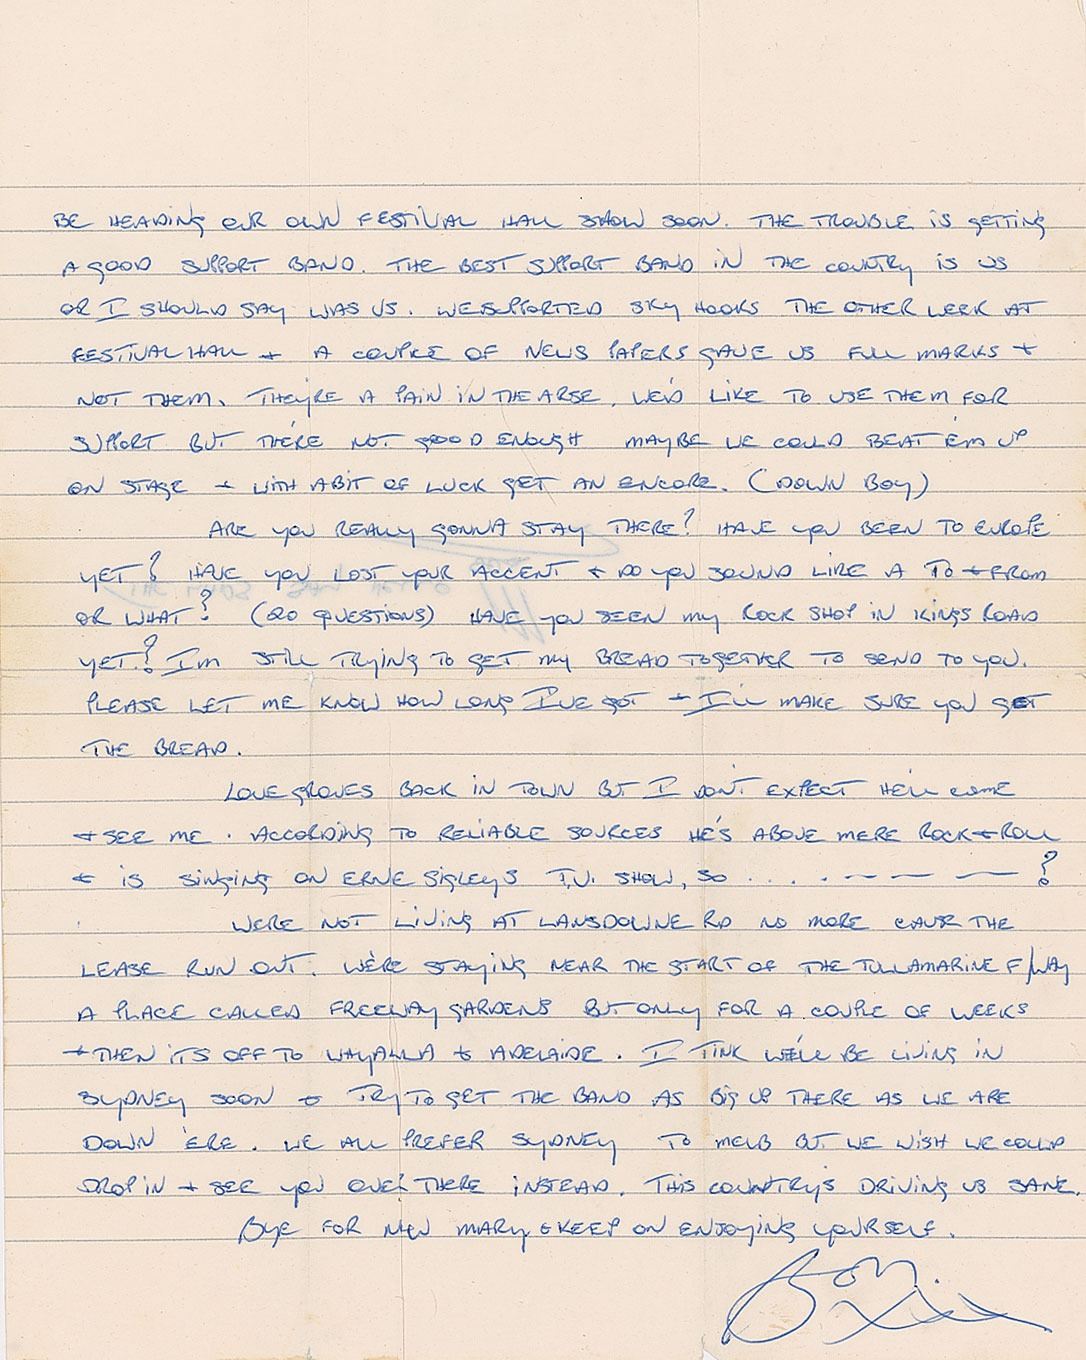 BE HEADING OUR OWN FESTIVAL HALL SHOW SOON. THE TROUBLE IS GETTING
A GOOD SUPPORT BAND. THE BEST SUPPORT BAND IN THE COUNTRY IS US
OR I SHOULD SAY WAS US. WE SUPPORTED SKY HOOKS THE OTHER WEEK AT
FESTIVAL HALL + A COUPLE OF NEWS PAPERS GAVE US FULL MARKS +
NOT THEM. THEY'RE A PAIN IN THE ARSE. WE'D LIKE TO USE THEM FOR
SUPPORT BUT THERE NOT GOOD ENOUGH MAYBE WE COULD BEAT EM UP
ON STAGE + WITH A BIT OF LUCK GET AN ENCORE. (DOWN BOY)
ARE YOU REALLY GONNA STAY THERE? HAVE YOU BEEN TO EUROPE
YET? HAVE YOU LOST YOUR ACCENT + DO YOU SOUND LIKE A TO + FROM
OR WHAT? (20 QUESTIONS) HAVE YOU SEEN MY ROCK SHOP IN KINGS ROAD
YET? I'M STILL TRYING TO GET MY BREAD TOGETHER TO SEND TO YOU.
PLEASE LET ME KNOW HOW LONG I'VE GOT + I'LL MAKE SURE YOU GET
THE BREAD.
LOVEGROVES BACK IN TOWN BUT I DON'T EXPECT HE'LL COME
+ SEE ME. ACCORDING TO RELIABLE SOURCES HE'S ABOVE MERE ROCK + ROLL
+ IS SINGING ON ERNE SIGLEYS T.V. SHOW, SO . . . . - — — — ?
WERE NOT LIVING AT LANSDOWNE RD NO MORE CAUSE THE
LEASE RUN OUT. WE'RE STAYING NEAR THE START OF THE TULLAMARINE F/WAY
A PLACE CALLED FREEWAY GARDENS BUT ONLY FOR A COUPLE OF WEEKS
+ THEN ITS OFF TO WHYALLA & ADELAIDE. I TINK WE'LL BE LIVING IN
SYDNEY SOON & TRY TO GET THE BAND AS BIG UP THERE AS WE ARE
DOWN 'ERE. WE ALL PREFER SYDNEY TO MELB BUT WE WISH WE COULD
DROP IN + SEE YOU OVER THERE INSTEAD. THIS COUNTRYS DRIVING US SANE.
BYE FOR NOW MARY & KEEP ON ENJOYING YOURSELF.
BON.